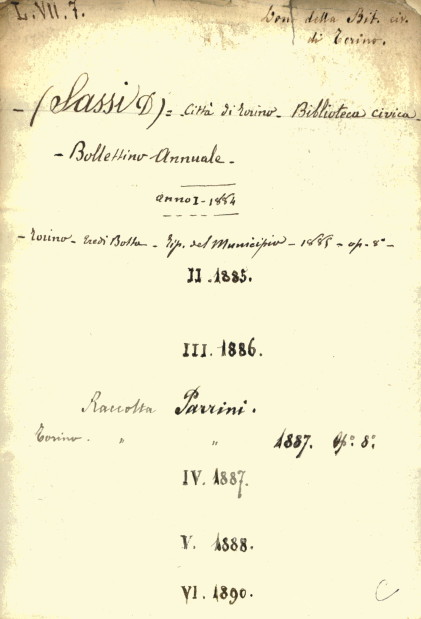 L. VII. 7.
Dono della Bib. civ.
di Torino.
- (Sassi D) = Città di Torino - Biblioteca civica -
- Bollettino Annuale -
anno I - 1884
- Torino - Eredi Botta - Tip. del Municipio - 1885 - op. 8° -
II. 1885.
III. 1886.
Raccolta Parrini.
Torino. " " 1887. op° 8°
IV. 1887.
V. 1888.
VI. 1890.
C